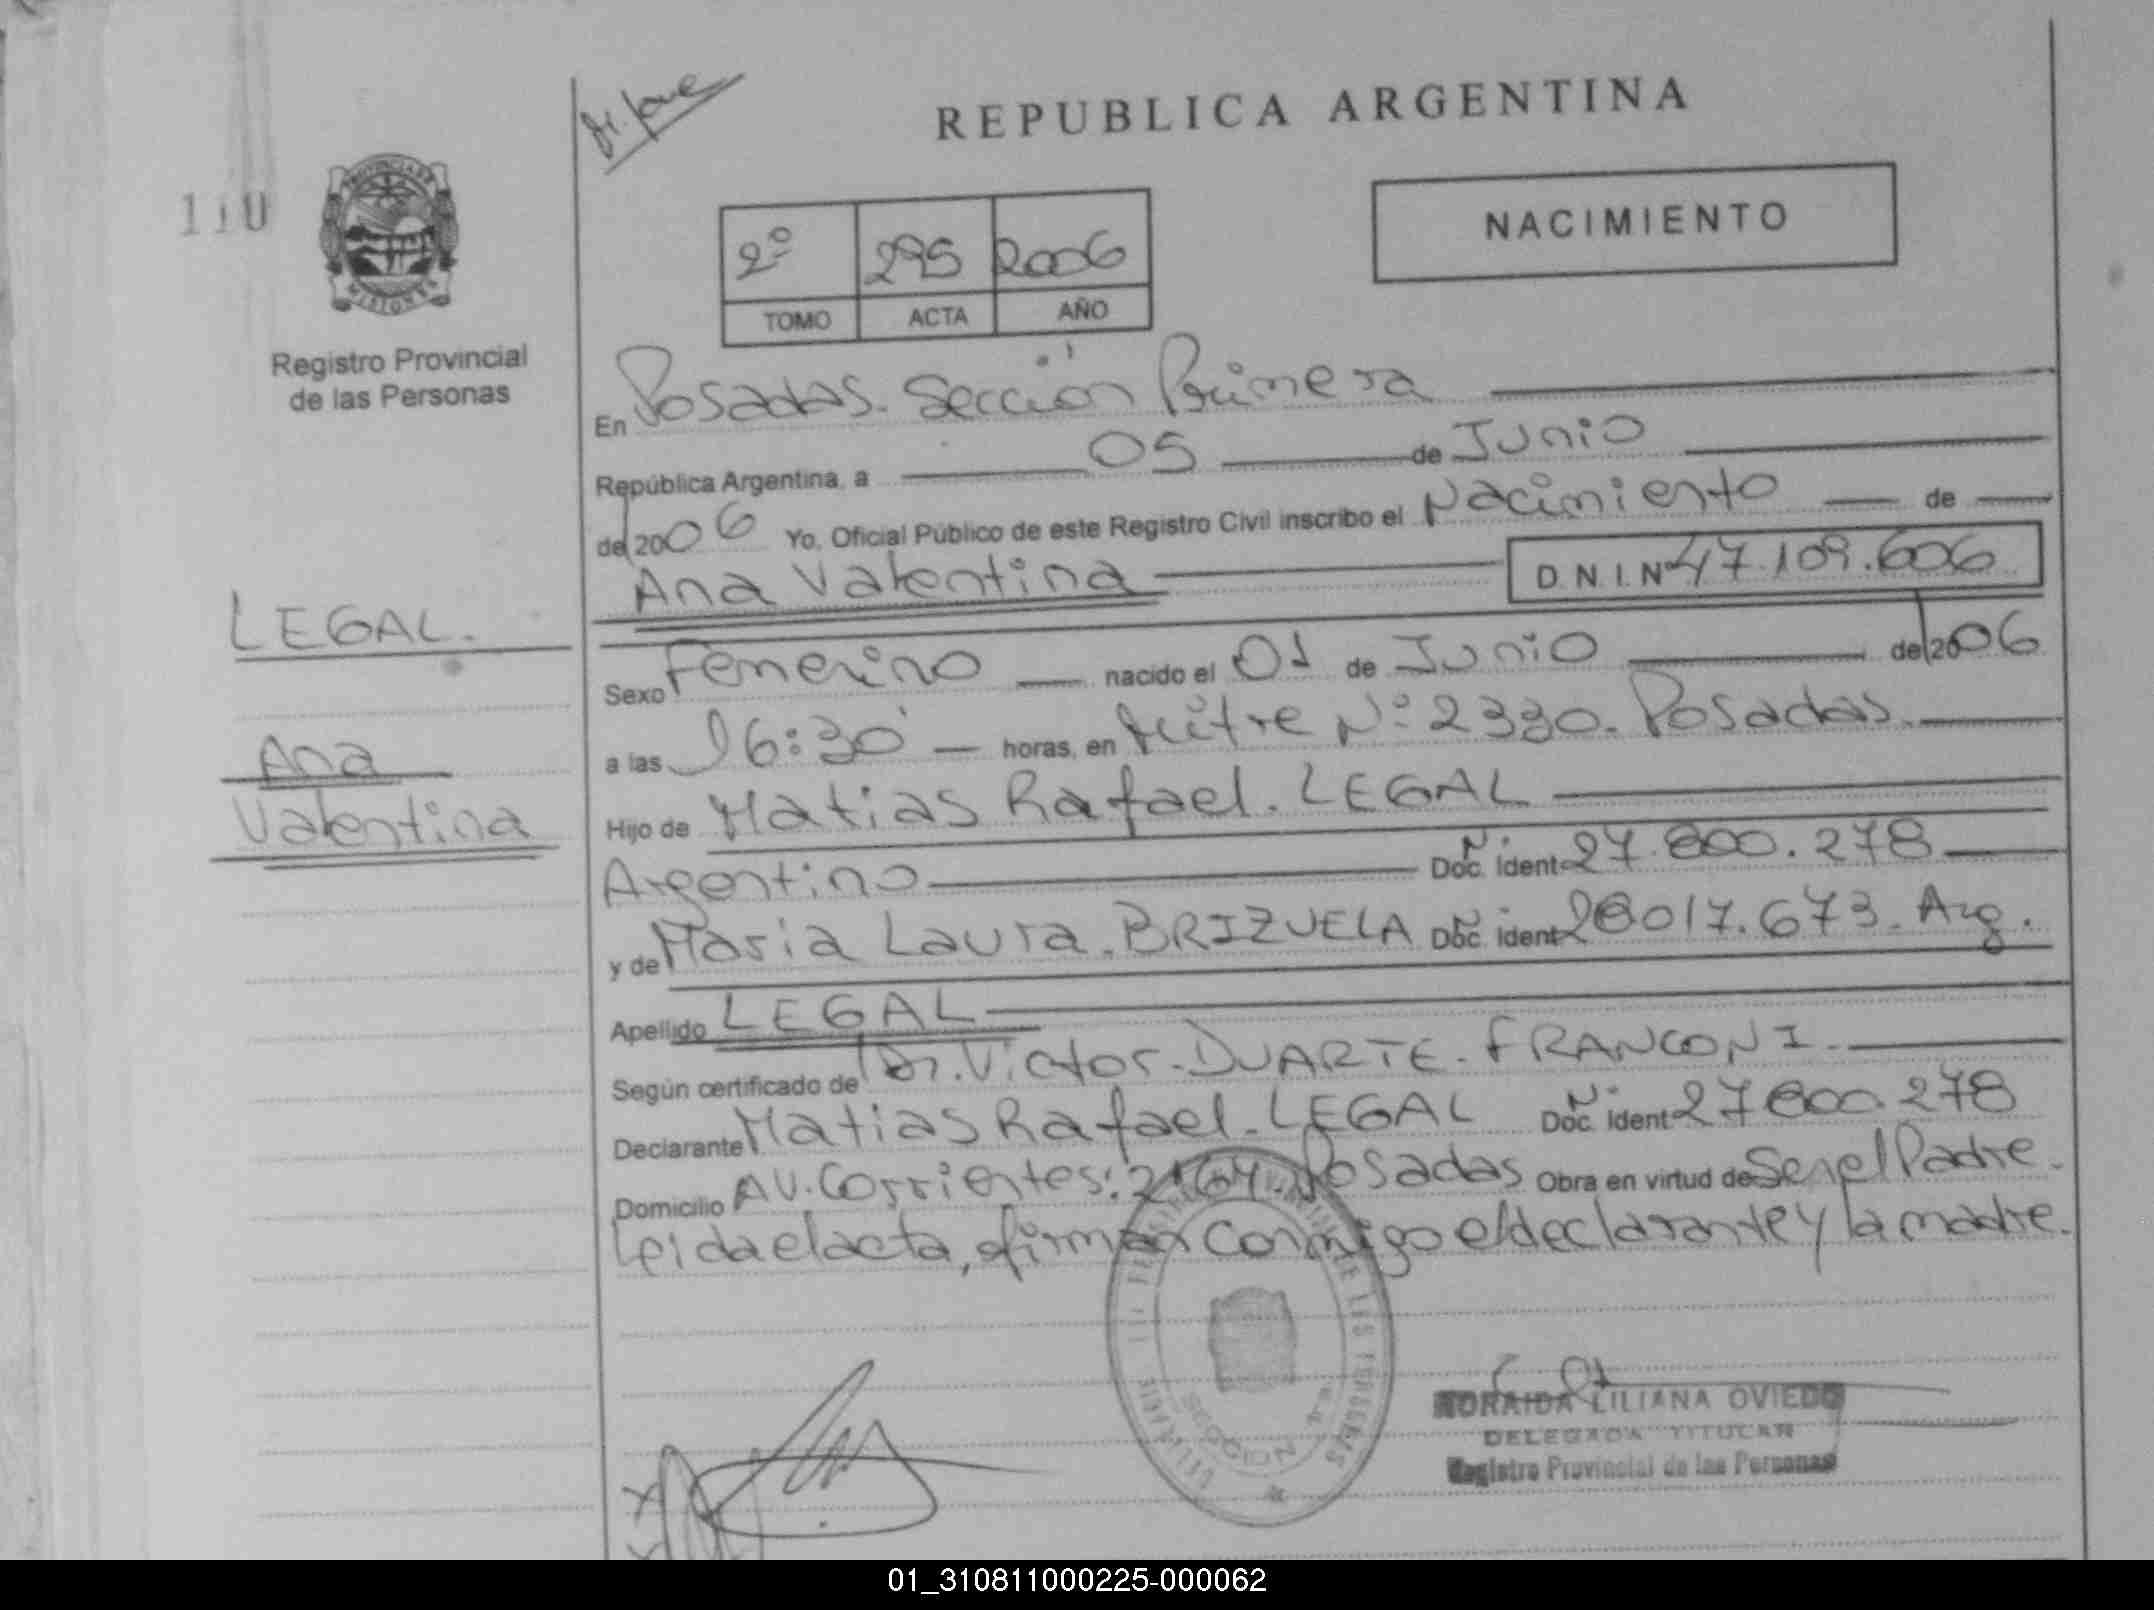 Di. Jove
REPUBLICA ARGENTINA
110
PROVINCIA DE
MISIONES
Registro Provincial
de las Personas
NACIMIENTO
2º 295 2006
TOMO ACTA AÑO
En Posadas. Sección Primera
República Argentina, a 05 de Junio
de 2006 Yo, Oficial Público de este Registro Civil inscribo el Nacimiento de
Ana Valentina D.N.I.Nº 47.109.606
LEGAL.
Ana
Valentina
Sexo Femenino nacido el 01 de Junio de 2006
a las 16:30 horas, en Mitre Nº 2330. Posadas.
Hijo de Matias Rafael. LEGAL
Argentino Doc. Ident 27.800.278
y de Maria Laura. BRIZUELA Doc. Ident 28017.673. Arg.
Apellido LEGAL
Según certificado de Dr. Victor. DUARTE. FRANCONI.
Declarante Matias Rafael. LEGAL Doc. Ident 27800.278
Domicilio AV. Corrientes: 2164. Posadas Obra en virtud de Ser el Padre.
Leida el acta, firman conmigo el declarante y la madre.
SECCION
LILIANA OVIEDO
DELEGADA TITULAR
Registro Provincial de las Personas
01_310811000225-000062